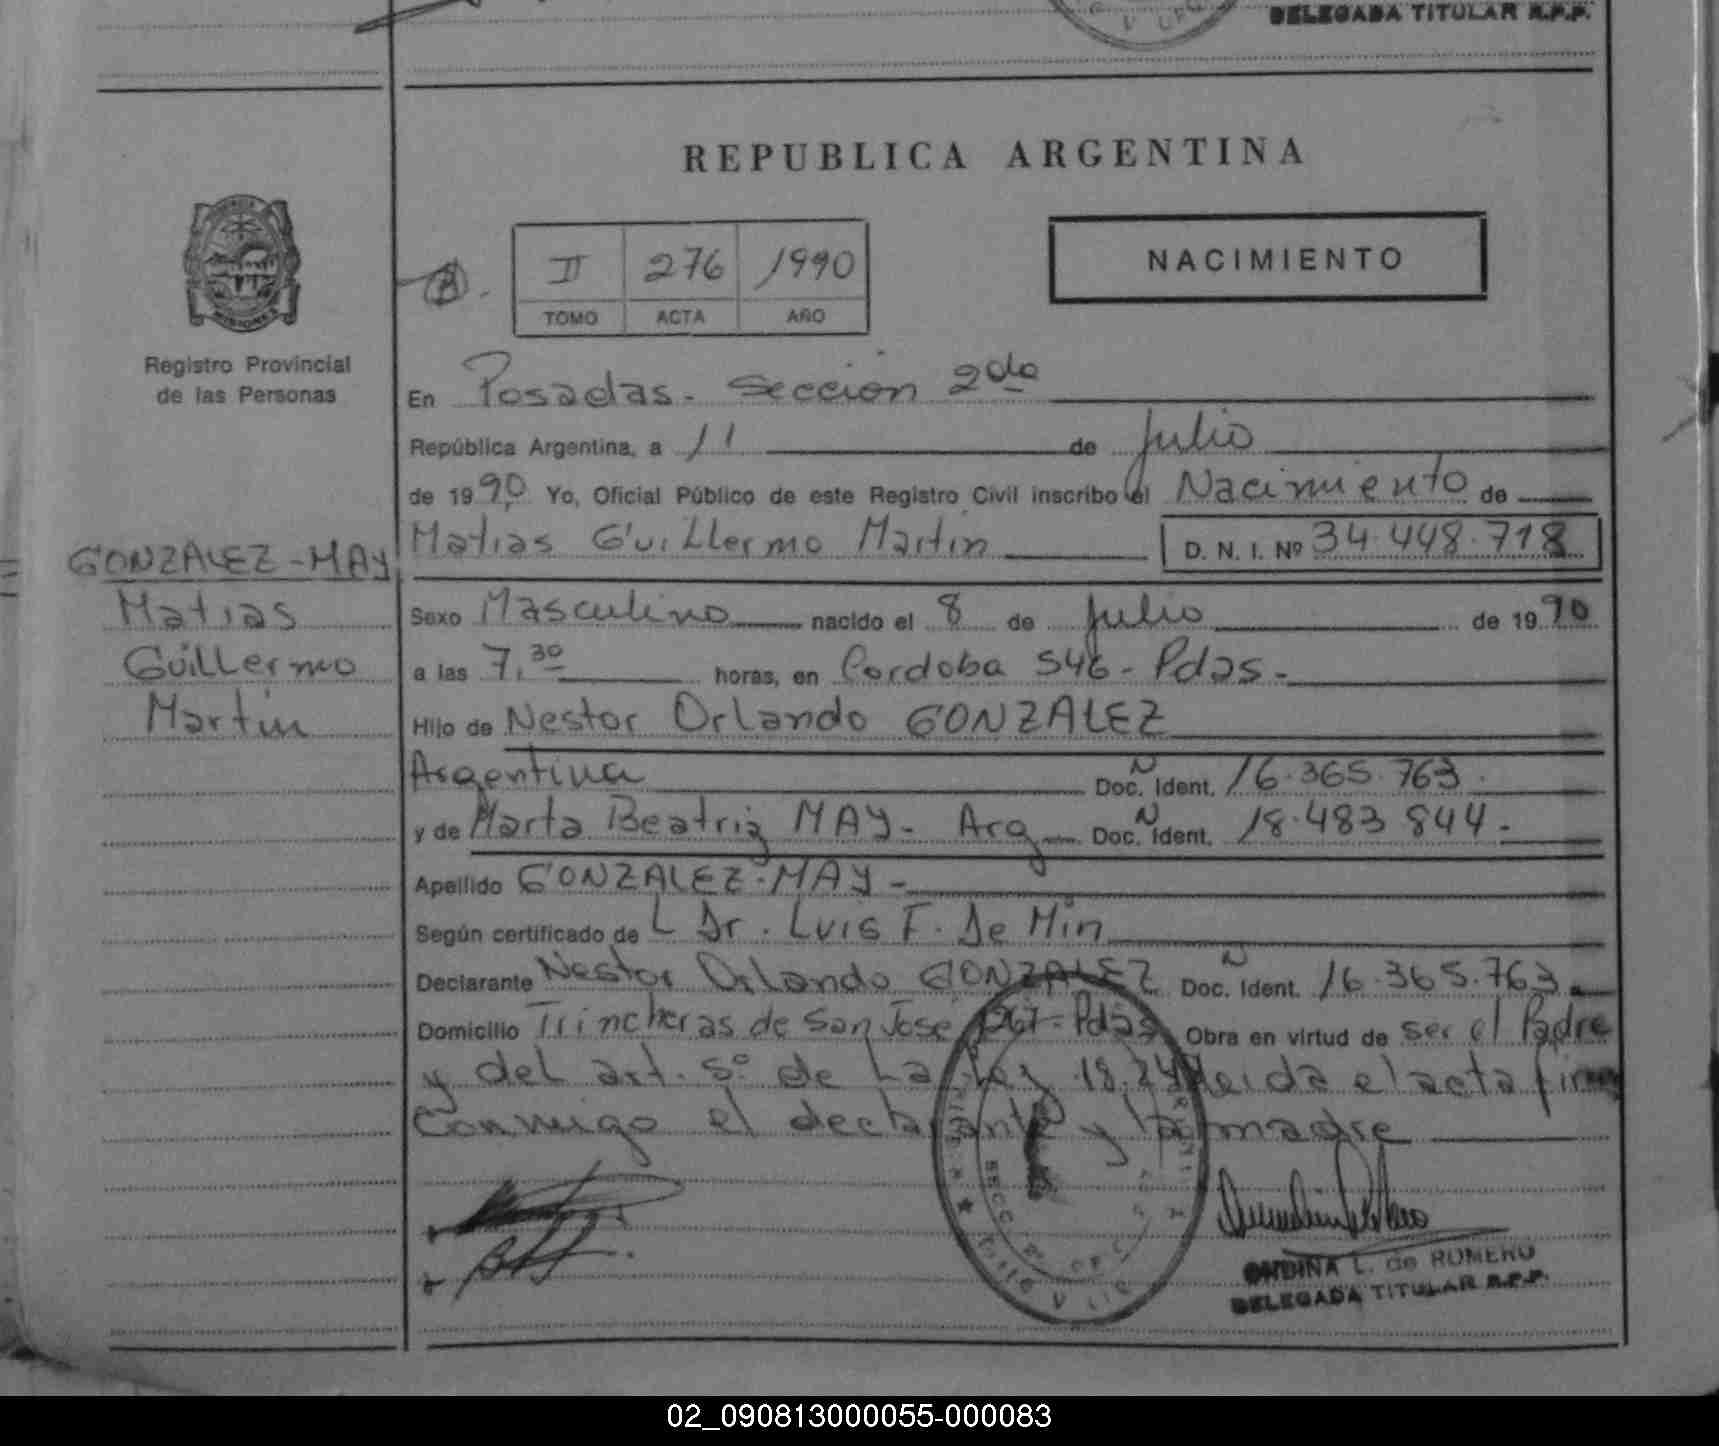 DELEGADA TITULAR R.P.P.
REPUBLICA ARGENTINA
NACIMIENTO
II 276 1990
TOMO ACTA AÑO
MISIONES
Registro Provincial
de las Personas
En Posadas - Sección 2da
República Argentina, a 11 de Julio
de 1990 Yo, Oficial Público de este Registro Civil inscribo el Nacimiento de
Matias Guillermo Martin D. N. I. Nº 34.448.718
GONZALEZ-MAY
Matias
Guillermo
Martin
Sexo Masculino nacido el 8 de Julio de 1990
a las 7,30 horas, en Cordoba 546 - Pdas -
Hijo de Nestor Orlando GONZALEZ
Argentina Doc. Ident. N 16.365.763
y de Marta Beatriz MAY - Arg Doc. Ident. N 18.483 844 -
Apellido GONZALEZ-MAY -
Según certificado de L Dr. Luis F. De Min
Declarante Nestor Orlando GONZALEZ Doc. Ident. N 16.365.763
Domicilio Trincheras de San Jose - Pdas Obra en virtud de ser el Padre
y del art. 5º de La Ley 18.248 leida el acta firma
conmigo el declarante y la madre
ONDINA L. de ROMERO
DELEGADA TITULAR R.P.P.
02_090813000055-000083